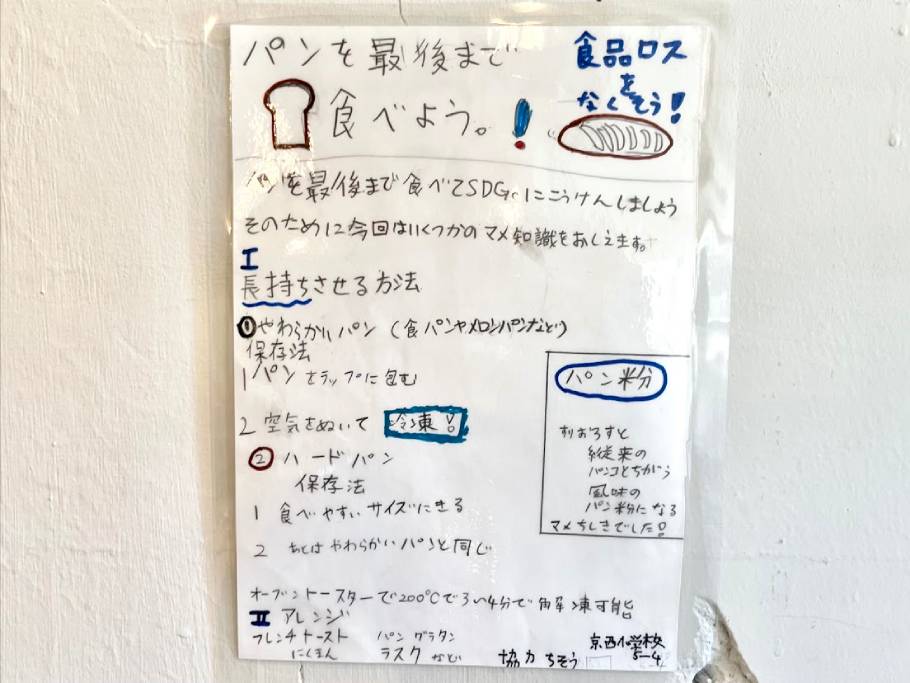 パンを最後まで
食べよう。!
食品ロス
を
なくそう!
パンを最後まで食べてSDGsにこうけんしましょう
そのために今回はいくつかのマメ知識をおしえます。
I
長持ちさせる方法
①やわらかいパン(食パンやメロンパンなど)
保存法
1 パンをラップに包む
2 空気をぬいて 冷凍!
② ハードパン
保存法
1 食べやすいサイズにきる
2 あとはやわらかいパンと同じ
パン粉
すりおろすと
従来の
パンコとちがう
風味の
パン粉になる
マメちしきでした!
オーブントースターで200℃で3い4分で解凍可能
II アレンジ
フレンチトースト パングラタン
にくまん ラスク など
協力 ちそう
京西小学校
5-4